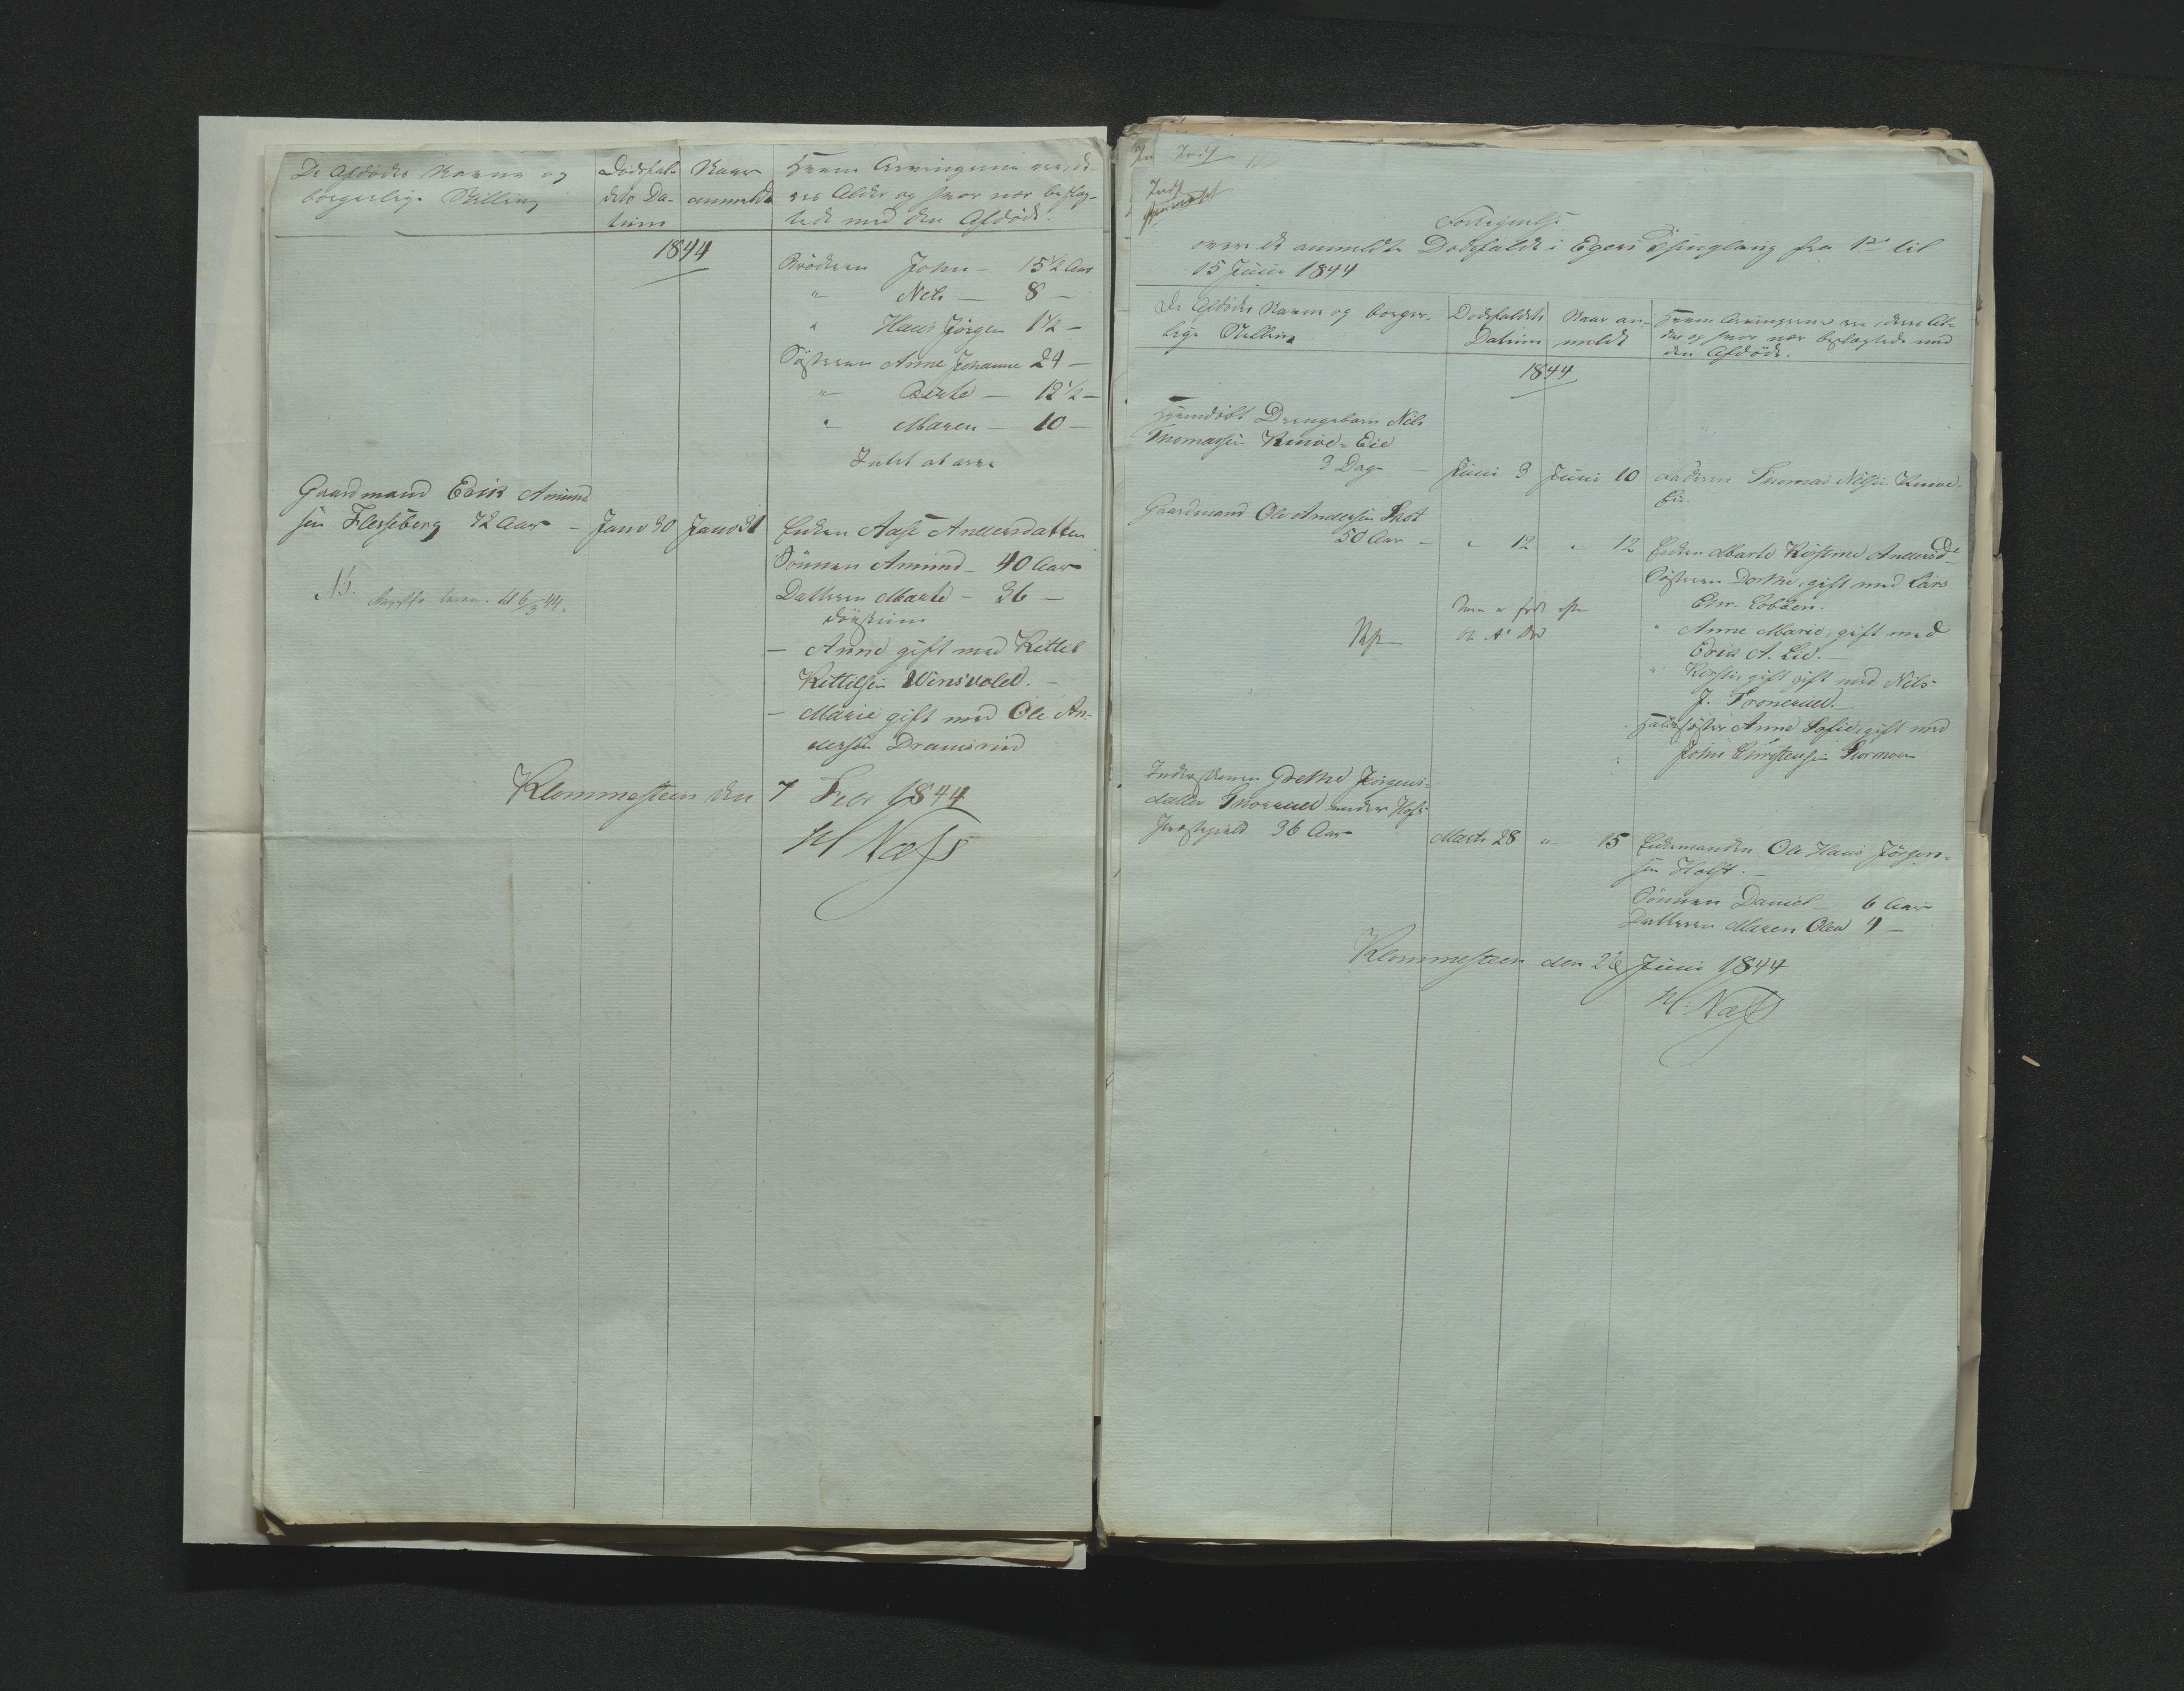 De Afdødes Navne og
borgerlige Stilling
Dødsfal-
dets Da-
tum
Naar
anmeldt
Hvem Arvingerne ere, de-
res Alder og hvor nær beslæg-
tede med den Afdøde.
1844
Brødren John - 15½ Aar
" Nels - 8 -
" Hans Jørgen 1½ -
Søsteren Anne Johanne 24 -
" Berte - 12½ -
" Maren - 10 -
Intet at arve
Gaardmand Erik Amund
sen Flesseberg 72 Aar - Janr 30 Janr 31 Enken Aase Andersdatter
Sønnen Amund - 40 Aar
Datteren Marte - 36 -
- Anne gift med Kittel
Kittelsen Winsvold. -
- Marie gift med Ole An-
dersen Dramsrud
Klommesteen den 7 Febr 1844
H Næss
Fortegnelse
over de anmeldte Dødsfalde i Egers Thinglaug fra 1ste til
15 Juni 1844
De Afdødes Navne og borger-
lige Stilling
Dødsfaldets
Datum
Naar an-
meldt
Hvem Arvingerne ere, deres Al-
der og hvor nær beslægtede med
den Afdøde.
1844
Hjemdøbt Drengebarn Nils
Thomassen Kmoe-Eie
3 Dage - Juni 3 Juni 10 Faderen Thomas Nilsen Kmoe-
Eie.
Gaardmand Ole Andersen
50 Aar - " 12 " 12 Enken Marte Kirstine Andersdr
Søsteren Dorthe, gift med Lars
Chr. Lobben.
" Anne Marie, gift med
Erik A. Lie. -
" Kirsti, gift med Nils
J. Fronerud. -
Halvsøster Anne Sofie, gift med
John Christensen
Inderstkonen Grethe Jørgens-
datter under
Præstegield 36 Aar Marts 28 " 15 Enkemanden Ole Hans Jørgen-
sen Holst. -
Sønnen Daniel 6 Aar
Datteren Maren Olea 4 -
Klommesteen den 26 Juni 1844
H. Næss